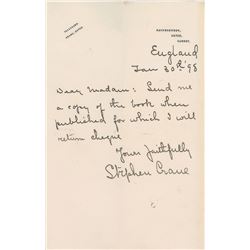 RAVENSBROOK,
OXTED,
SURREY.
England
Jan 30th '98
Dear Madam: Send me
a copy of the book when
published for which I will
return cheque
Yours faithfully
Stephen Crane